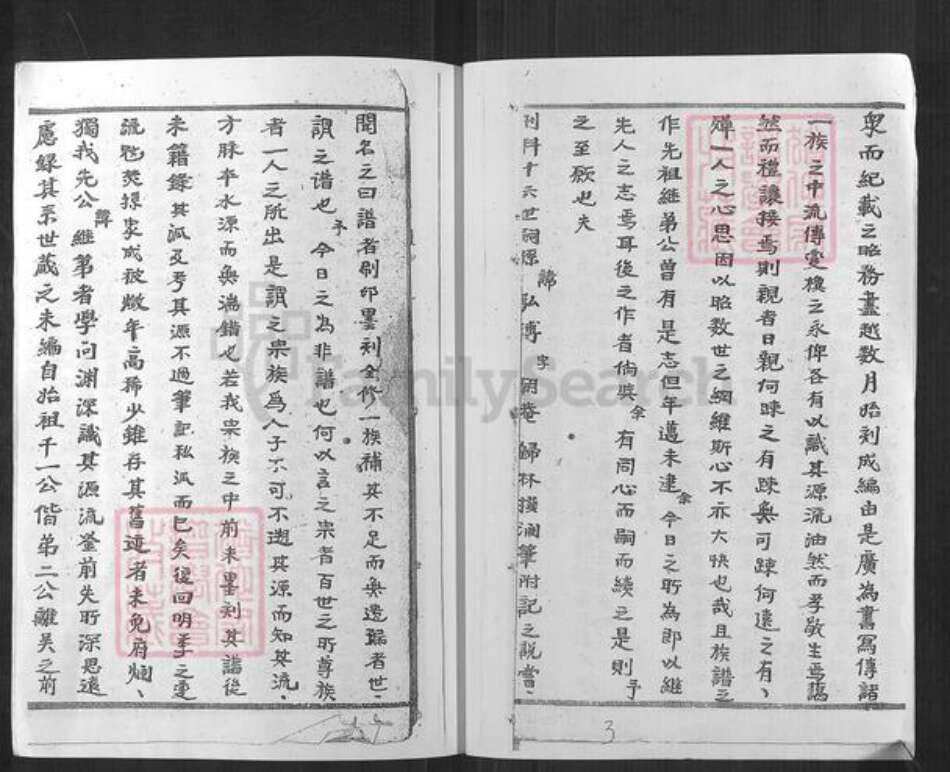 衆而紀載之昭務盡越数月始刻成編由是廣為書寫傳諸
一族之中流傳變樸之永俾各有以識其源流油然而孝敬生焉藹
然而禮讓接焉則親者日親何疎之有疎奧可踈何遠之有、
殫一人之心思因以昭数世之綱維斯心不亦大快也哉且族譜之
作先祖継第公曾有是志但年邁未逮余今日之所為即以継
先人之志焉耳後之作者倘與余有同心而嗣而續之是則予
之至厥也夫
十六世嗣孫諦弘博字 歸林撲澜筆附記之說嘗、
聞名之曰譜者刷印墨刻全修一族補其不足而奐遺漏者世、
謂之谱也予今日之為非譜也何以言之宗者百世之所尊族
者一人之所出是謂之宗族為人子不可不遡其源而知其流、
方脉本水源而奐湍錯也若我宗族之中前未墨刻其譜從
未籍錄其派及考其源不過筆記私派而已矣後回明季之
流 焚掠家成被燬年高稀少雖存其舊迹者未免腐爛、
獨我先公諱継第者學问渊深識其源流鉴前失所深思遠
慮錄其系世蔵之未編自始祖千一公偕弟二公離吴之前
3